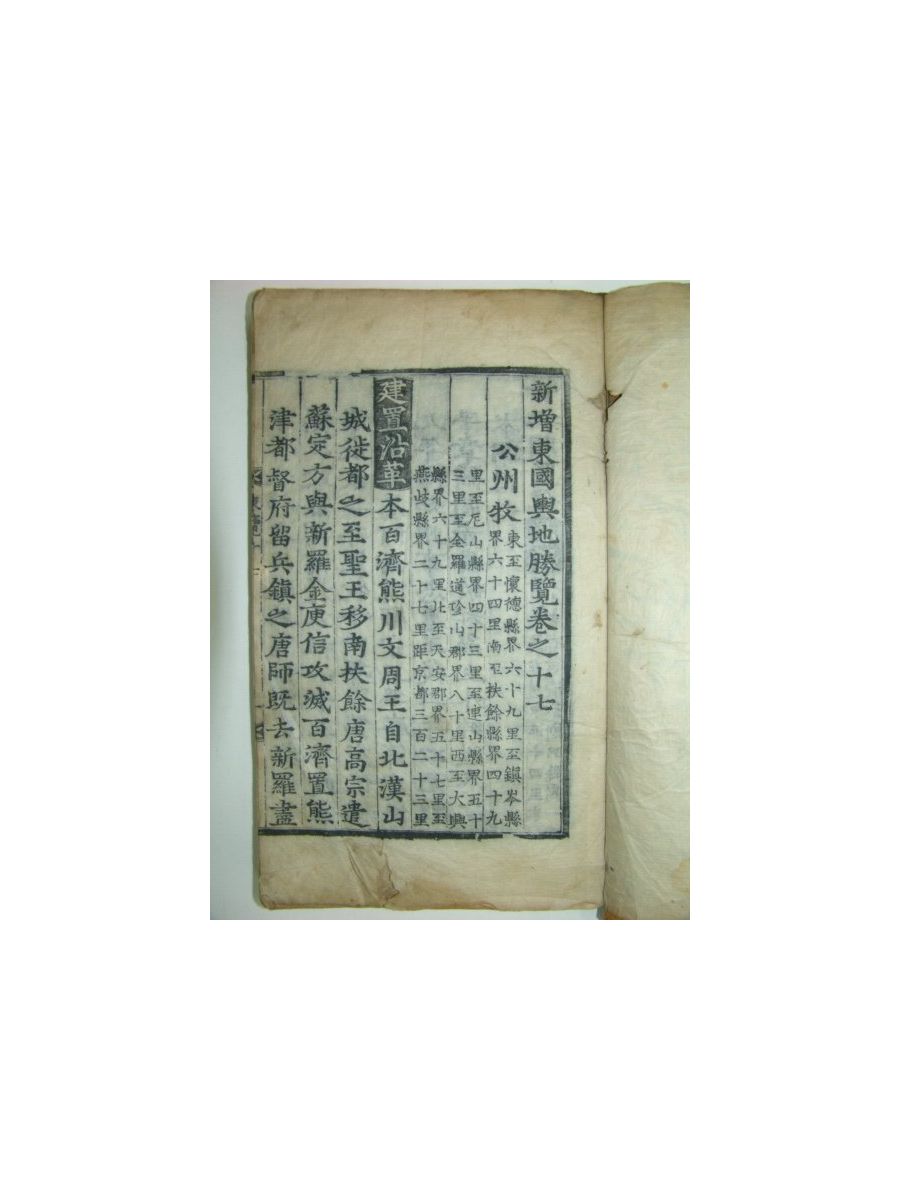 新增東國輿地勝覽卷之十七
公州牧東至懷德縣界六十九里至鎭岑縣
界六十四里南至扶餘縣界四十九
里至尼山縣界四十三里至連山縣界五十
三里至全羅道珎山郡界八十里西至大興
縣界六十九里北至天安郡界五十七里至
燕歧縣界二十七里距京都三百二十三里
建置沿革本百濟熊川文周王自北漢山
城徙都之至聖王移南扶餘唐高宗遣
蘇定方與新羅金庾信攻滅百濟置熊
津都督府留兵鎭之唐師旣去新羅盡